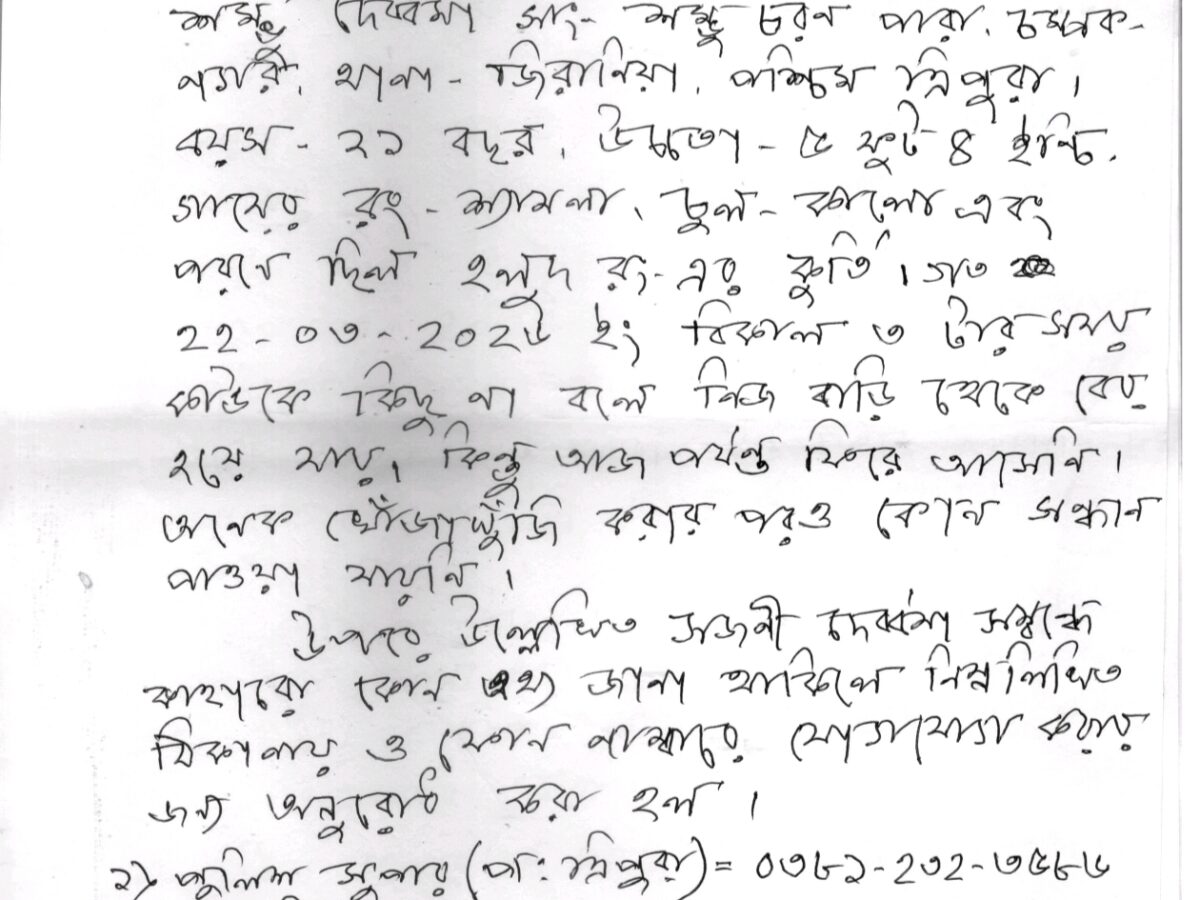 শম্ভু দেববর্মা সাং- শম্ভু চরন পারা, চম্পক-
নগর, থানা - জিরানিয়া, পশ্চিম ত্রিপুরা।
বয়স - ২১ বছর, উচ্চতা - ৫ ফুট ৪ ইন্চি,
গায়ের রং - শ্যামলা, চুল - কালো এবং
পরনে ছিল হলুদ রং-এর কুর্তি। গত
২২ - ০৩ - ২০২৬ ইং বিকাল ৩ টার সময়
কাউকে কিছু না বলে নিজ বাড়ি থেকে বের
হয়ে যায়, কিন্তু আজ পর্যন্ত ফিরে আসেনি।
অনেক খোঁজাখুঁজি করার পরও কোন সন্ধান
পাওয়া যায়নি।
উপরে উল্লেখিত সজনী দেববর্মা সম্বন্ধে
কাহারো কোন তথ্য জানা থাকিলে নিম্নলিখিত
ঠিকানায় ও ফোন নাম্বারে যোগাযোগ করার
জন্য অনুরোধ করা হল।
১) পুলিশ সুপার (প: ত্রিপুরা) = ০৩৮১-২৩২-৩৫৮৬